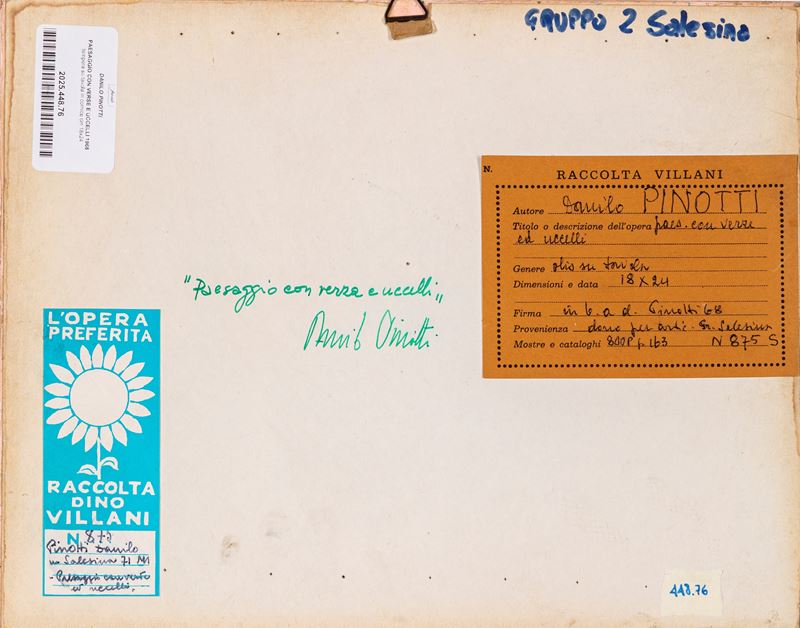 GRUPPO 2 Salesina
DANILO PINOTTI
PAESAGGIO CON VERSE E UCCELLI 1968
tempera su tavola in cornice cm 18x24
2025.448.76
N.
RACCOLTA VILLANI
Autore Danilo PINOTTI
Titolo o descrizione dell'opera paes. con verze
ed uccelli
Genere olio su tavola
Dimensioni e data 18 X 24
Firma in b. a d. Pinotti 68
Provenienza : dono per Salesina
Mostre e cataloghi p. 163 N 875 S
"Paesaggio con verza e uccelli"
Danilo Pinotti
L'OPERA
PREFERITA
RACCOLTA
DINO
VILLANI
N
Pinotti Danilo
Salesina 71
Paesaggio con verze
ed uccelli.
448.76